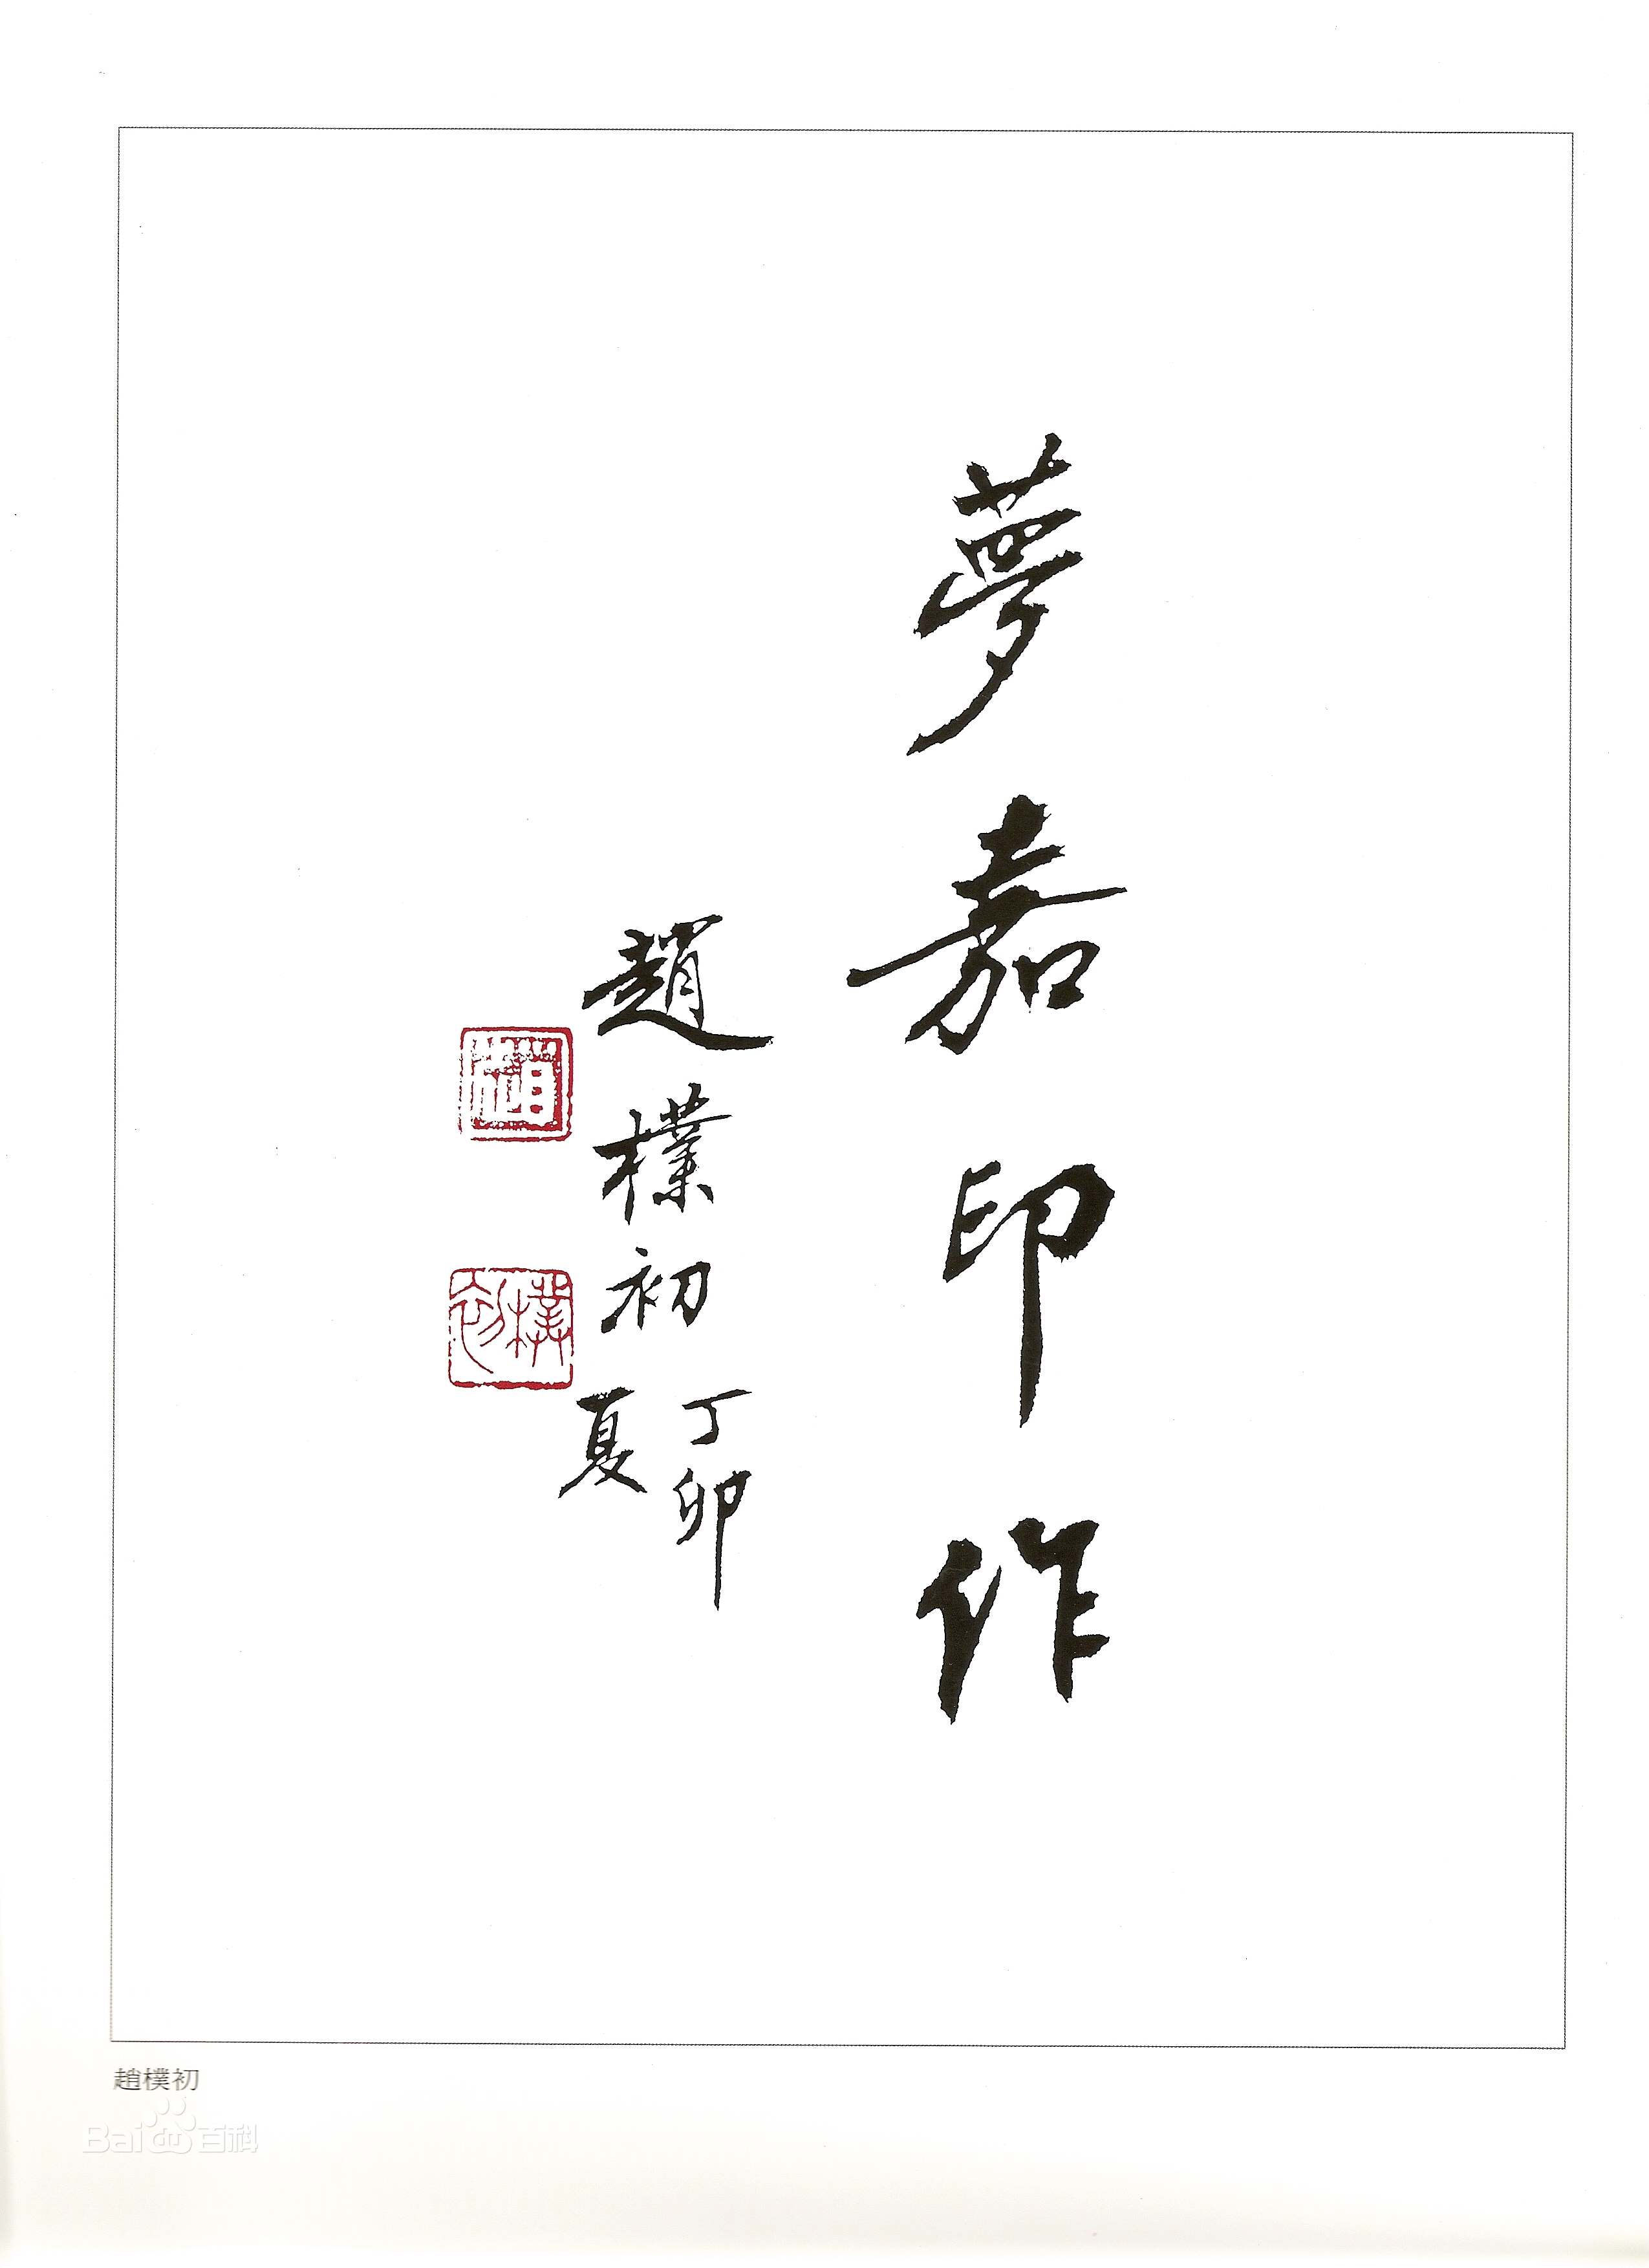 夢嘉印作
趙樸初
丁卯
夏
趙
樸初
趙樸初
Bai 百科